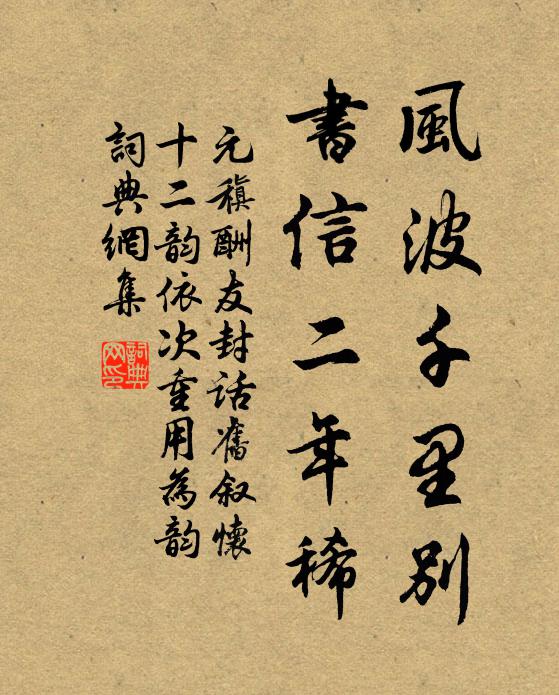 風波千里別
書信二年稀
元稹酬友封話舊叙懷
十二韵依次重用為韵
詞典網集
詞典網印